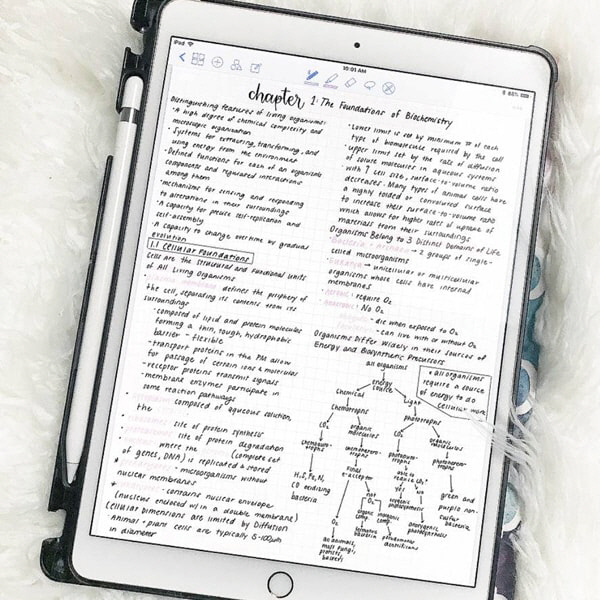 iPad
10:01 AM
65%
chapter 1: The Foundations of Biochemistry
Distinguishing features of living organisms:
• a high degree of chemical complexity and
microscopic organization
• Systems for extracting, transforming, and
using energy from the environment
• Defined functions for each of an organism's
components and regulated interactions
among them
• mechanisms for sensing and responding
to alterations in their surroundings
• A capacity for precise self-replication and
self-assembly
• A capacity to change over time by gradual
evolution
1.1 Cellular Foundations
Cells are the structural and functional units
of All Living Organisms
defines the periphery of
the cell, separating its contents from its
surroundings
• composed of lipid and protein molecules
forming a thin, tough, hydrophobic
barrier - flexible
• transport proteins in the PM allow
for passage of certain ions & molecules
• receptor proteins transmit signals
• membrane enzymes participate in
some reaction pathways
composed of aqueous solution,
the
site of protein synthesis
site of protein degradation
where the (complete set
of genes, DNA) is replicated & stored
microorganisms without
nuclear membranes
contains nuclear envelope
(nucleus enclosed w/in a double membrane)
Cellular Dimensions are Limited by Diffusion
• Animal + plant cells are typically 5-100μm
in diameter
• Lower limit is set by minimum # of each
type of biomolecule required by the cell
• upper limit set by the rate of diffusion
of solute molecules in aqueous systems
• with ↑ cell size, surface-to-volume ratio
decreases. Many types of animal cells have
a highly folded or convoluted surface
to increase their surface-to-volume ratio
which allows for higher rates of uptake of
materials from their surroundings
Organisms Belong to 3 Distinct Domains of Life
Bacteria + Archaea → 2 groups of single-
celled microorganisms
Eukarya → unicellular or multicellular
organisms whose cells have internal
membranes
Aerobic: require O₂
Anaerobic: No O₂
- die when exposed to O₂
- can live with or without O₂
Organisms Differ Widely in their Sources of
Energy and Biosynthetic Precursors
all organisms
energy
source
* all organisms
require a source
of energy to do
cellular work
Chemical
Light
Chemotrophs
phototrophs
CO₂
organic
molecules
CO₂
organic
molecules
final
e⁻ acceptor
able to
yes
no
H₂S, Fe, N,
CO oxidizing
bacteria
green and
purple non-
sulfur
bacteria
O₂
not
O₂
organic
comp.
inorganic
comp.
all animals,
most fungi,
protists,
bacteria